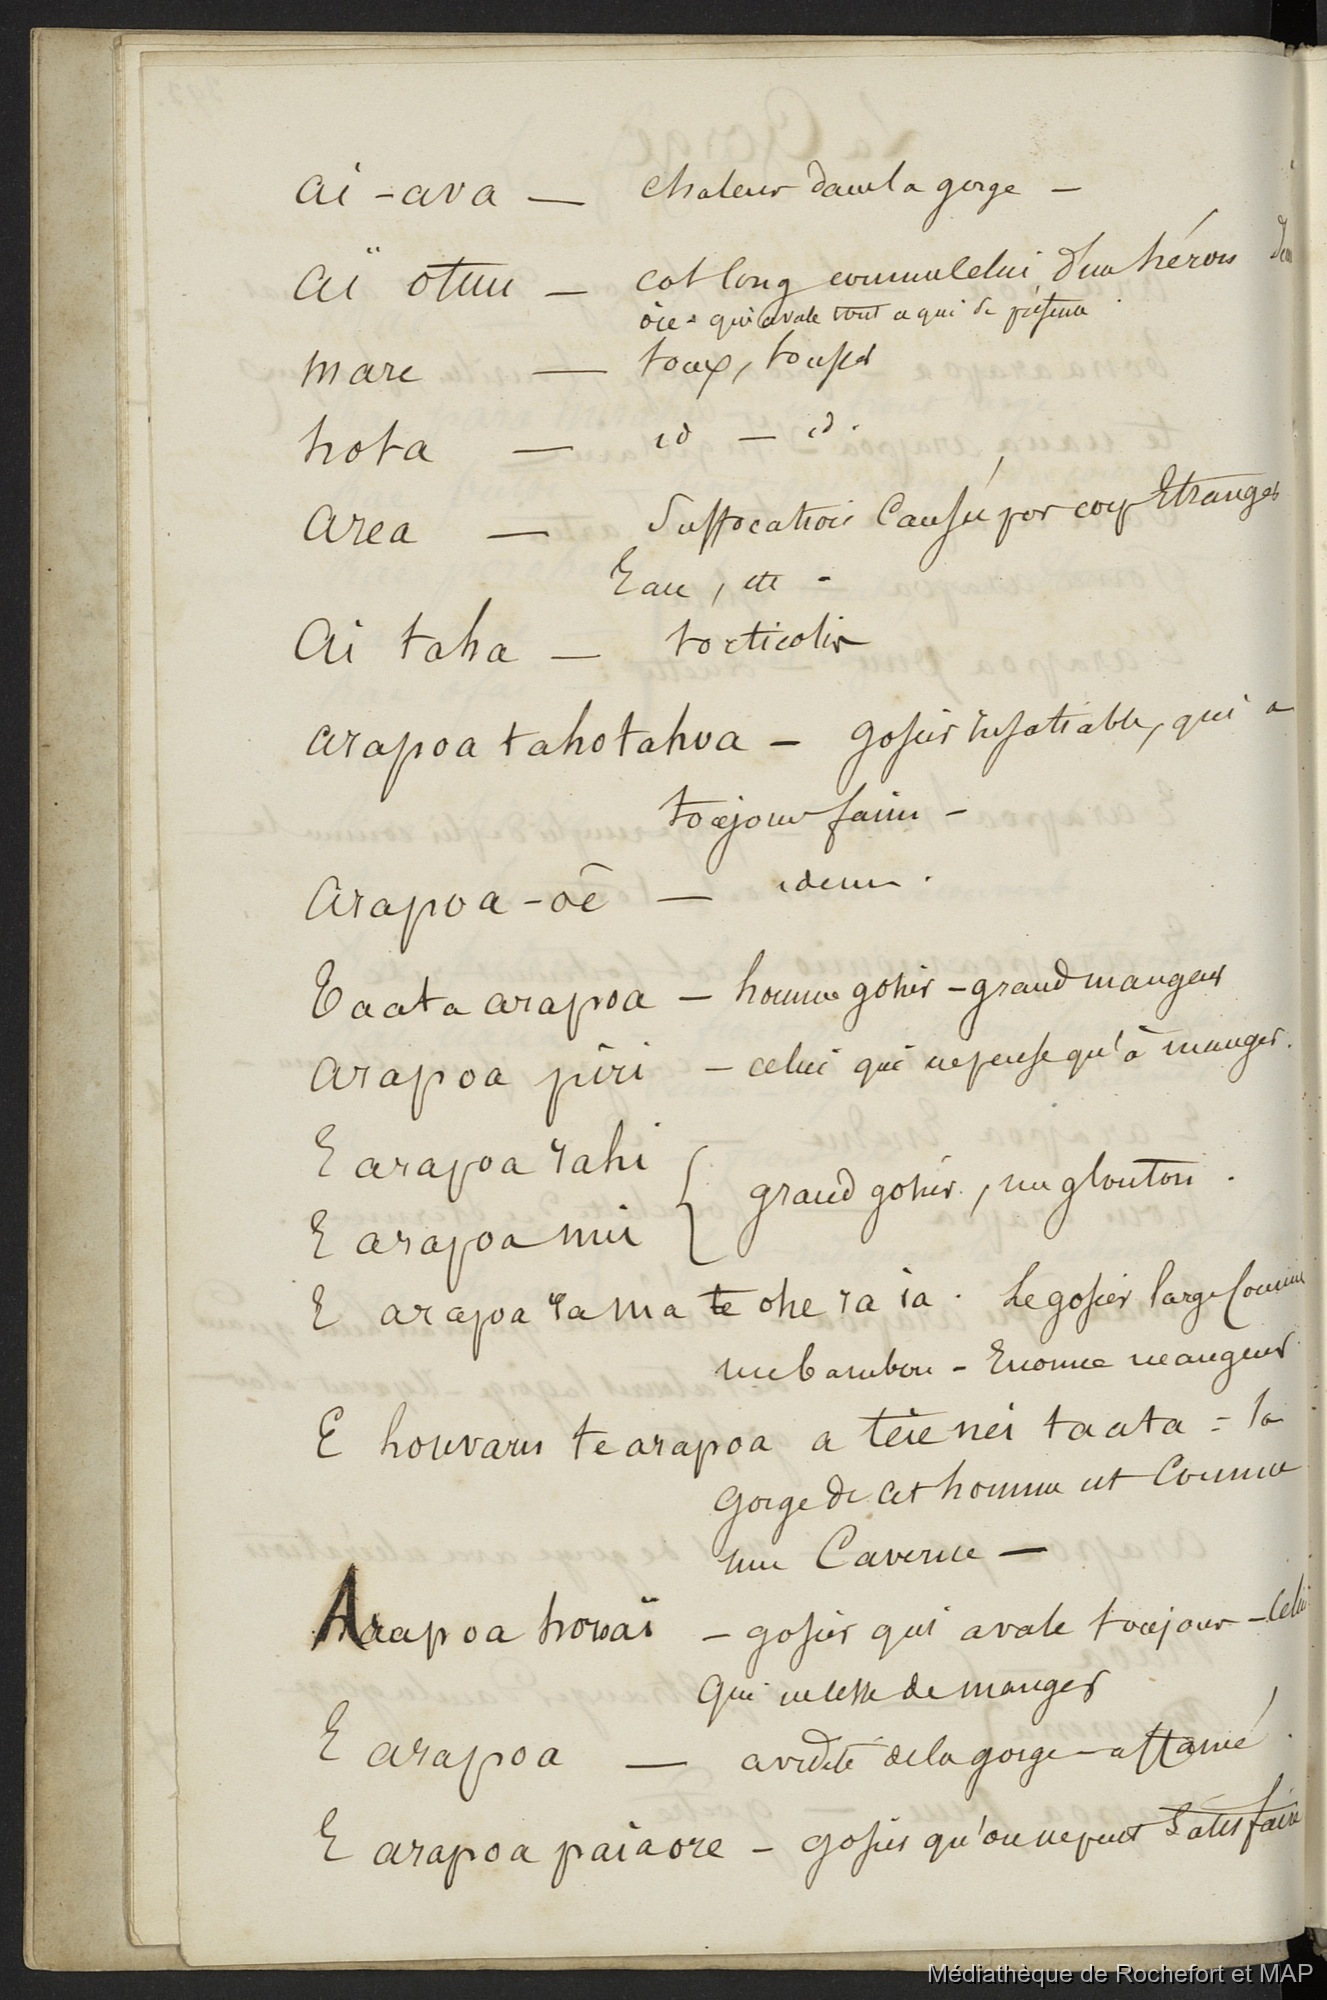 ai - ava — chaleur dans la gorge —
aï otuu — col long comme celui d'un héron
oie - qui avale tout ce qui se présente
mare — toux, tousser
hota — id — id.
area — Suffocation Causée par corp Etranger
Eau, etc -
Ai taha — torticolis
arapoa tahotahoa — gosier insatiable, qui a
toujour faim -
arapoa-oê — idem.
Taata arapoa — homme gosier - grand mangeur
arapoa piri — celui qui ne pense qu'à manger.
E arapoa rahi
E arapoa nui { grand gosier, un glouton.
E arapoa rama te ohe ra ia. Le gosier large Comme
un bambou - Enorme mangeur
E houvaru te arapoa a teie nei taata = la
gorge de cet homme est Comme
une Caverne —
Arapoa horoaï — gosier qui avale toujour - Celui
Qui ne cesse de manger
E arapoa — avidité de la gorge - affamé.
E arapoa paiaore - gosier qu'on ne peut Satisfaire
Médiathèque de Rochefort et MAP